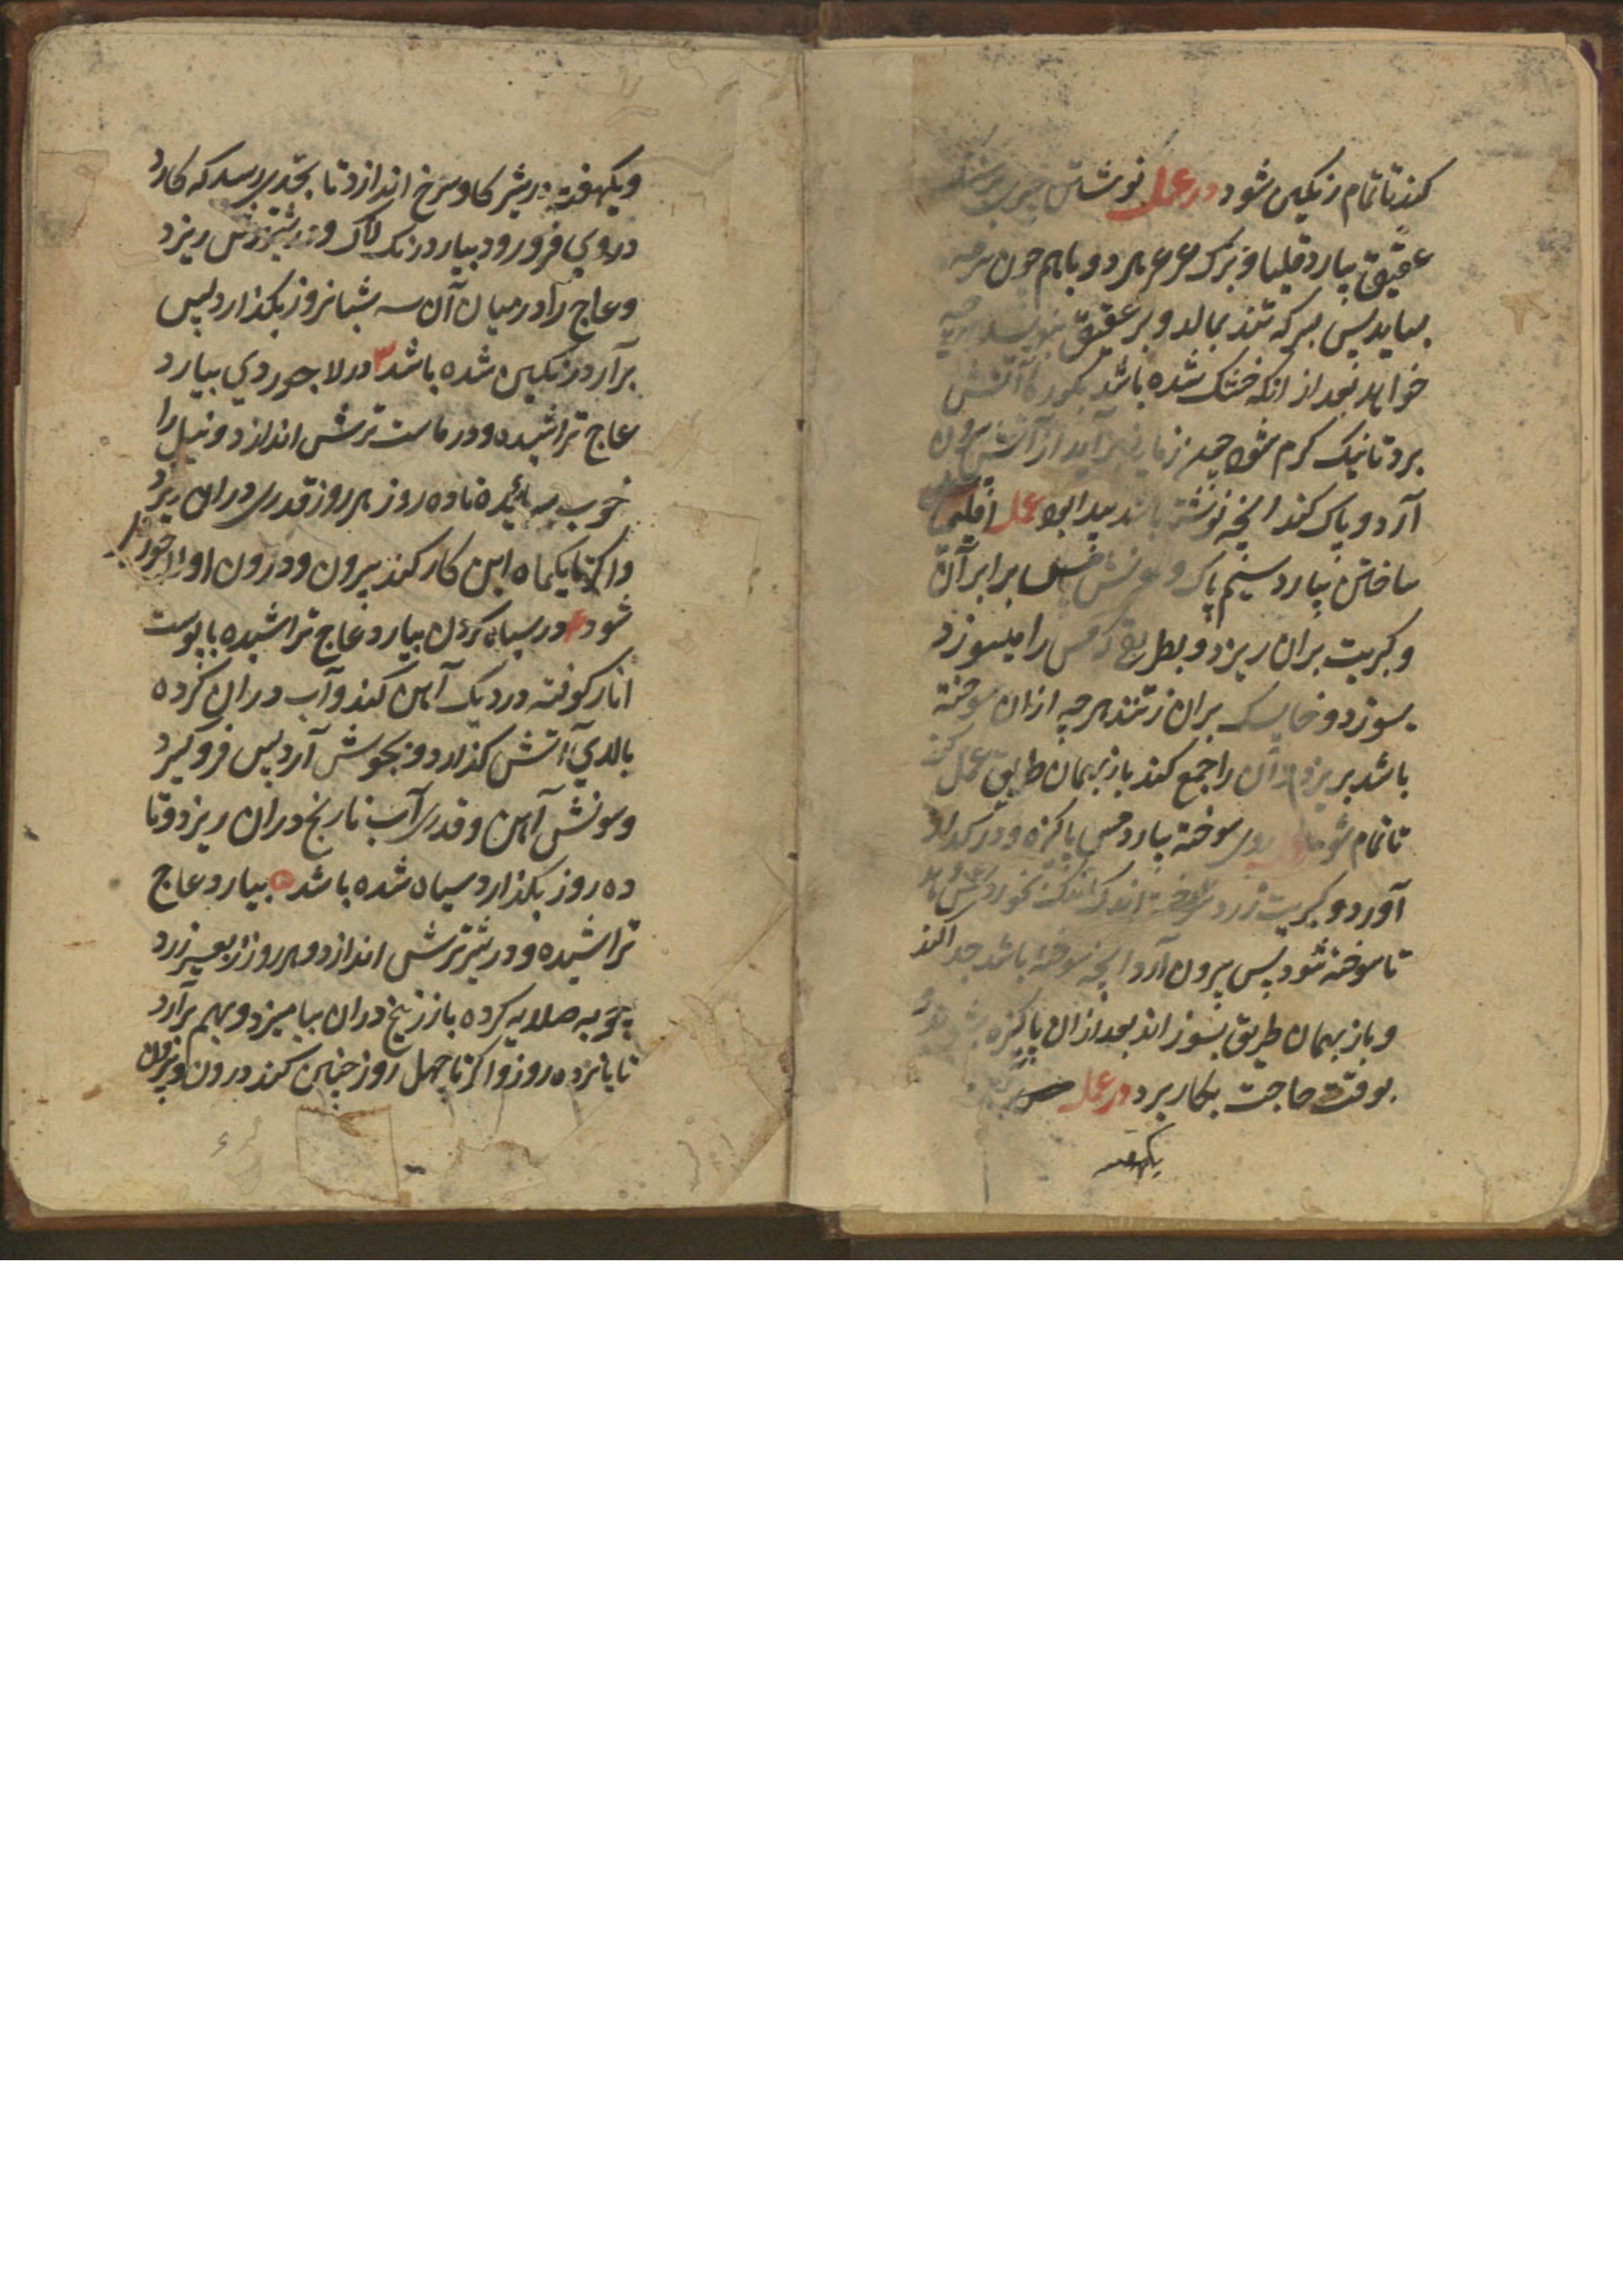 کند تا تمام رنگین شود در عمل نوشتن
عقیق بیارد قلیا و ترک هر دو باهم چون سرمه
بساید پس بسرکه تند بمالد و بر عقیق
خواهد بعد از انکه خشک شده باشد
برد تا نیک گرم شود زمانی بر آید از آتش بیرون
آرد و پاک کند انچه نوشته باشد پیدا بود عمل اقلیمیا
ساختن بیارد سیم پاک و برابر آن
و کبریت بران ریزد و بطریقی که مس را میسوزد
بسوزد و خایسک بران زنند هرچه ازان سوخته
باشد بریزد آن را جمع کند باز بهمان طریق عمل کند
تا تمام شود روی سوخته بیارد مس پاکیزه و در
آورد و کبریت زرد اندک اندک
تا سوخته شود پس بیرون آرد انچه سوخته باشد جدا کند
و باز بهمان طریق بسوزاند بعد ازان پاکیزه
بوقت حاجت بکار برد در عمل
یکهفته
و یکهفته در شیر کاو سرخ اندازد تا بحدی برسد که کارد
در وی فرو رود بیارد رنک لاک و در شیر ترش ریزد
و عاج را در میان آن سه شبانروز بکذارد پس
برآرد رنکین شده باشد ۳ در لاجوردی بیارد
عاج تراشیده و در ماست ترش اندازد و نیل را
خوب سائیده تا ده روز هر روز قدری دران ریزد
و اکر تا یکماه این کار کند بیرون و درون او لاجورد
شود ۴ در سیاه کردن بیارد عاج تراشیده با پوست
انار کوفته در دیک آهن کند و آب دران کرده
بالای آتش کذارد و بجوش آرد پس فرو کیرد
و سونش آهن و قدری آب نارنج دران ریزد و تا
ده روز بکذارد سیاه شده باشد ۵ بیارد عاج
تراشیده و در شیر ترش اندازد و هر روز زرد
چوبه صلایه کرده با زرنیخ دران بیامیزد و بهم برآرد
تا پانزده روز و اکر تا چهل روز چنین کند درون و بیرون